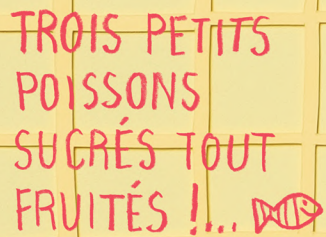 TROIS PETITS
POISSONS
SUCRÉS TOUT
FRUITÉS !...